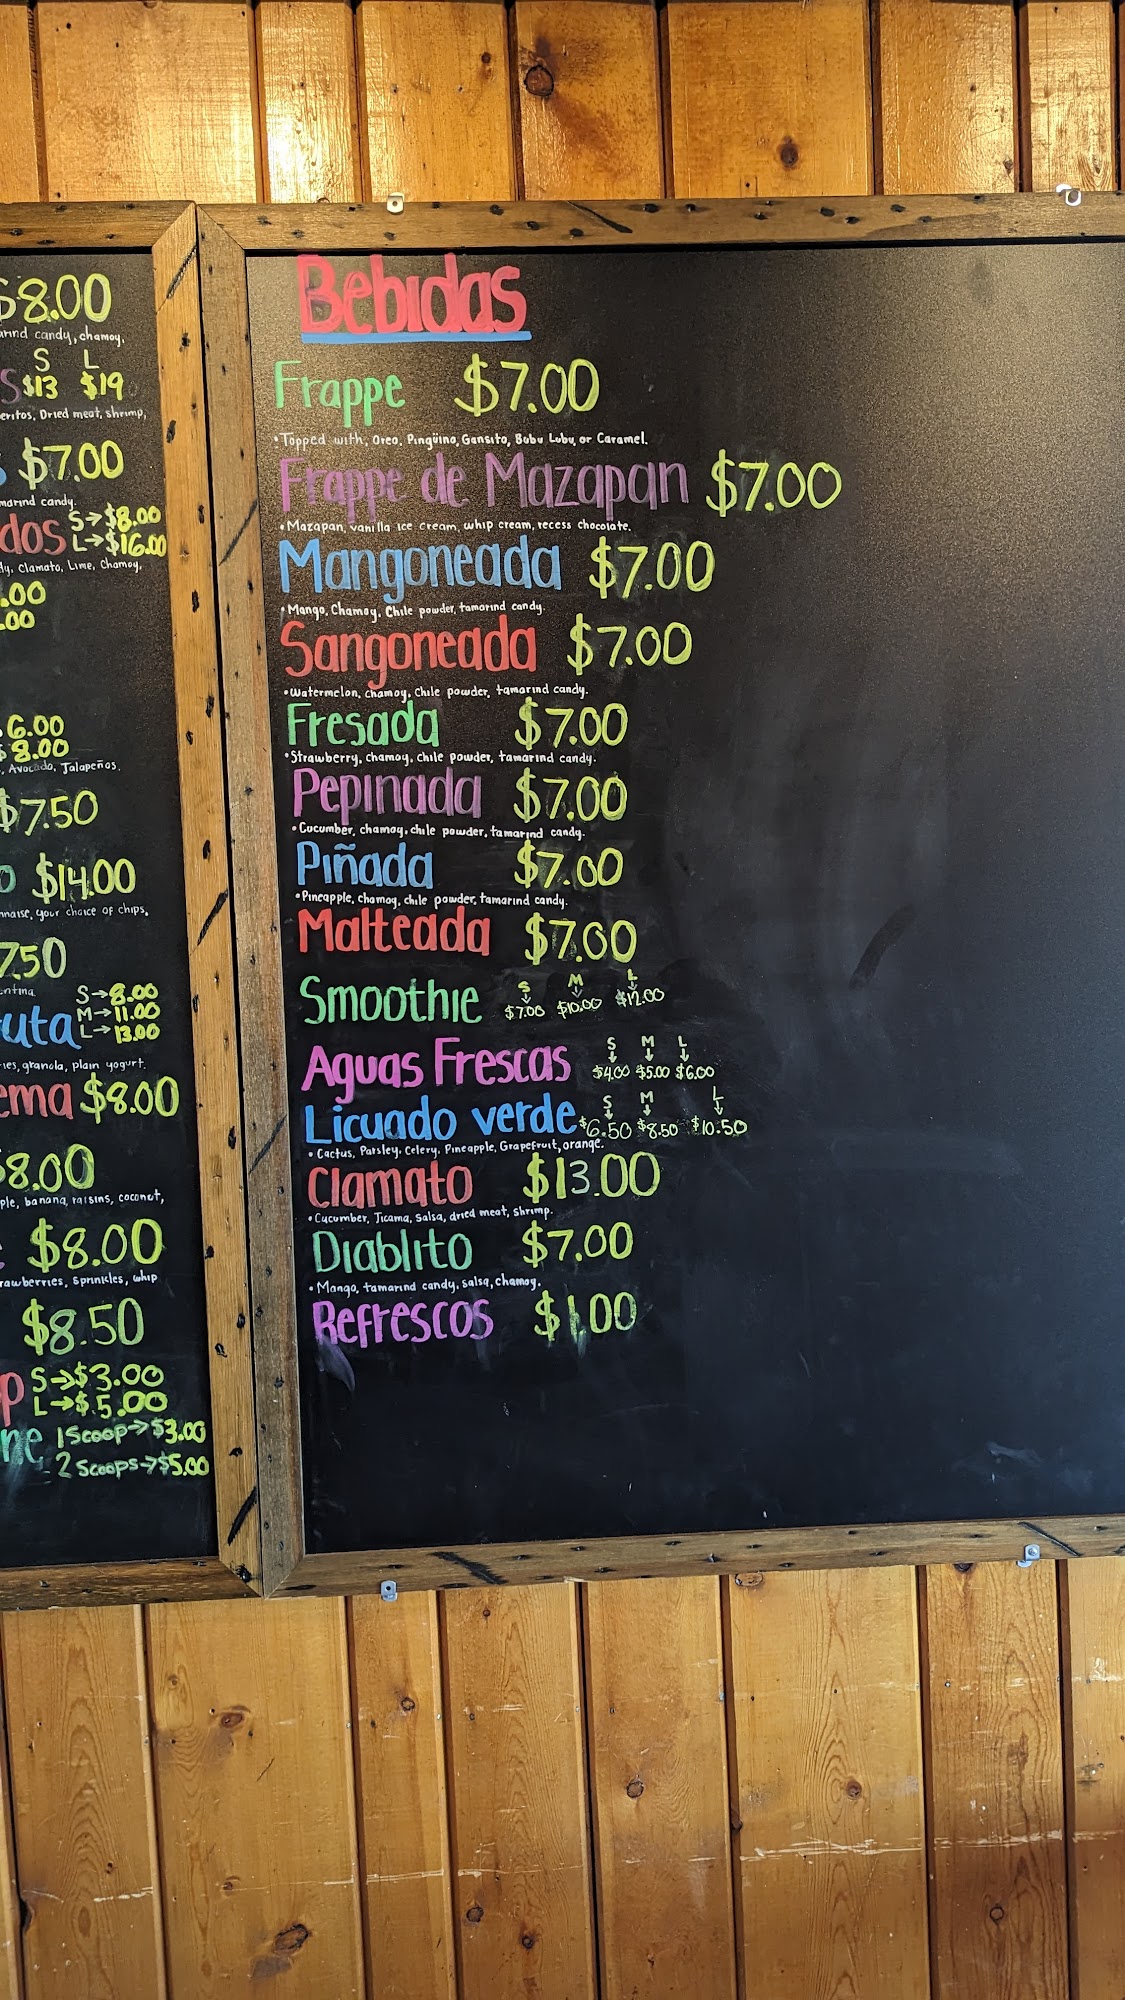 $8.00
candy, chamoy,
S L
$13 $19
Dried meat, shrimp,
$7.00
candy.
dos S→$8.00
L→$16.00
Clamato, Lime, Chamoy,
.00
.00
6.00
$8.00
Avocado, Jalapeños.
$7.50
o $14.00
your choice of chips.
7.50
uta S→8.00
M→11.00
L→13.00
granola, plain yogurt.
ema $8.00
$8.00
banana, raisins, coconut,
$8.00
Sprinkles, whip
$8.50
p S→$3.00
L→$5.00
ne 1 Scoop→$3.00
2 Scoops→$5.00
Bebidas
Frappe $7.00
• Topped with, Oreo, Pingüino, Gansito, Bubu Lubu, or Caramel.
Frappe de Mazapan $7.00
• Mazapan, vanilla ice cream, whip cream, recess chocolate.
Mangoneada $7.00
• Mango, Chamoy, Chile powder, tamarind candy.
Sangoneada $7.00
• Watermelon, chamoy, chile powder, tamarind candy.
Fresada $7.00
• Strawberry, chamoy, chile powder, tamarind candy.
Pepinada $7.00
• Cucumber, chamoy, chile powder, tamarind candy.
Piñada $7.00
• Pineapple, chamoy, chile powder, tamarind candy.
Malteada $7.00
S M L
Smoothie $7.00 $10.00 $12.00
S M L
Aguas Frescas $4.00 $5.00 $6.00
S M L
Licuado verde $6.50 $8.50 $10.50
• Cactus, Parsley, Celery, Pineapple, Grapefruit, orange.
Clamato $13.00
• Cucumber, Jicama, Salsa, dried meat, shrimp.
Diablito $7.00
• Mango, tamarind candy, salsa, chamoy.
Refrescos $1.00